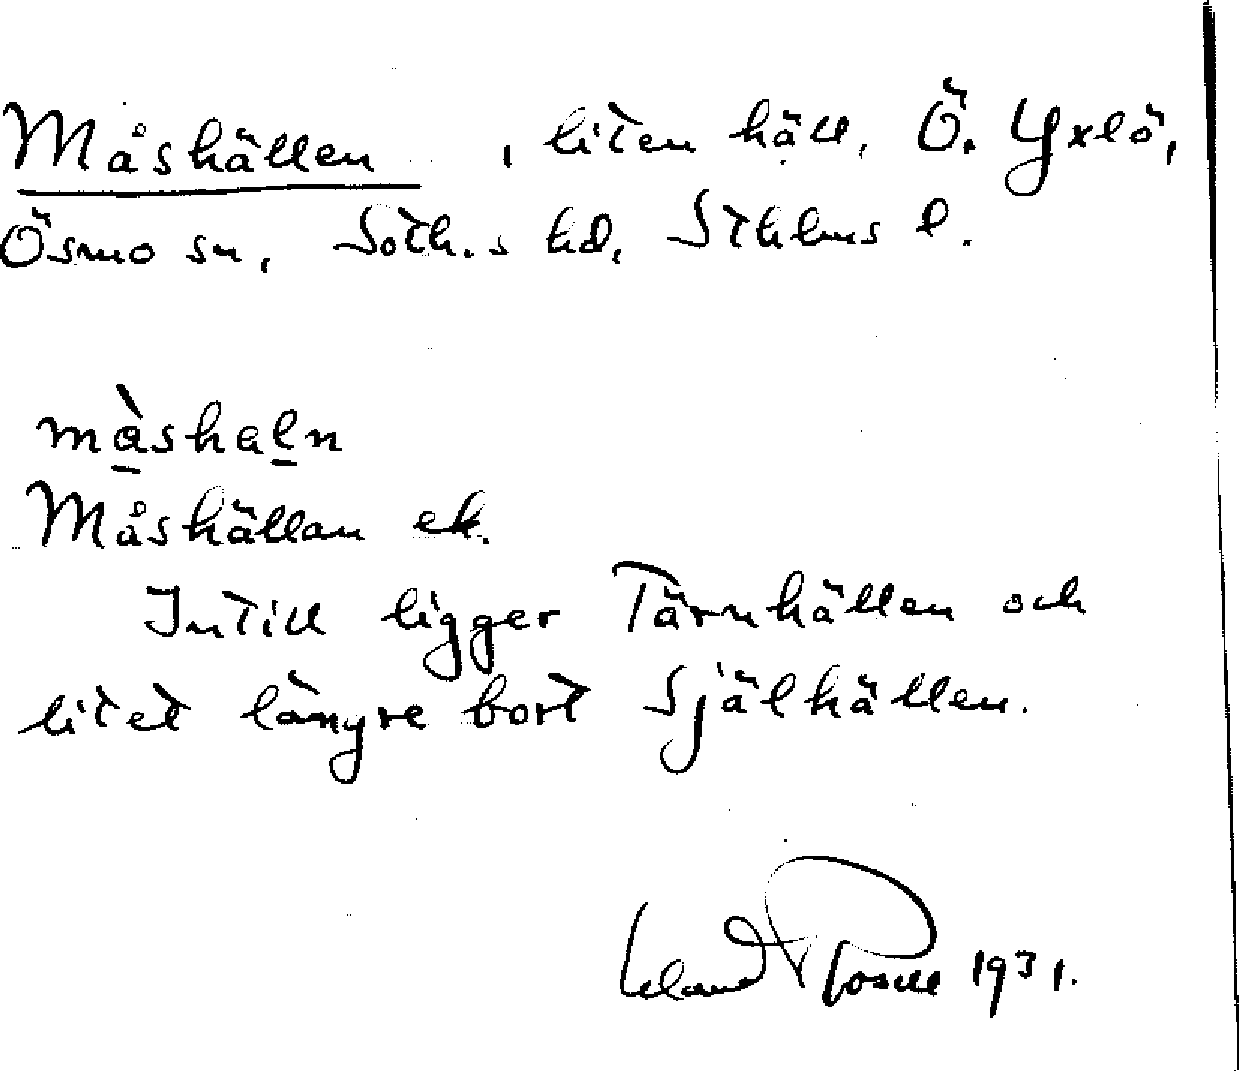 Måshällen, liten häll, Ö. Yxlö,
Ösmo sn, Soth.s hd, Sthlms l.
màshaln
Måshällan ek.
Intill ligger Tärnhällen och
litet längre bort Själhällen.
1931.